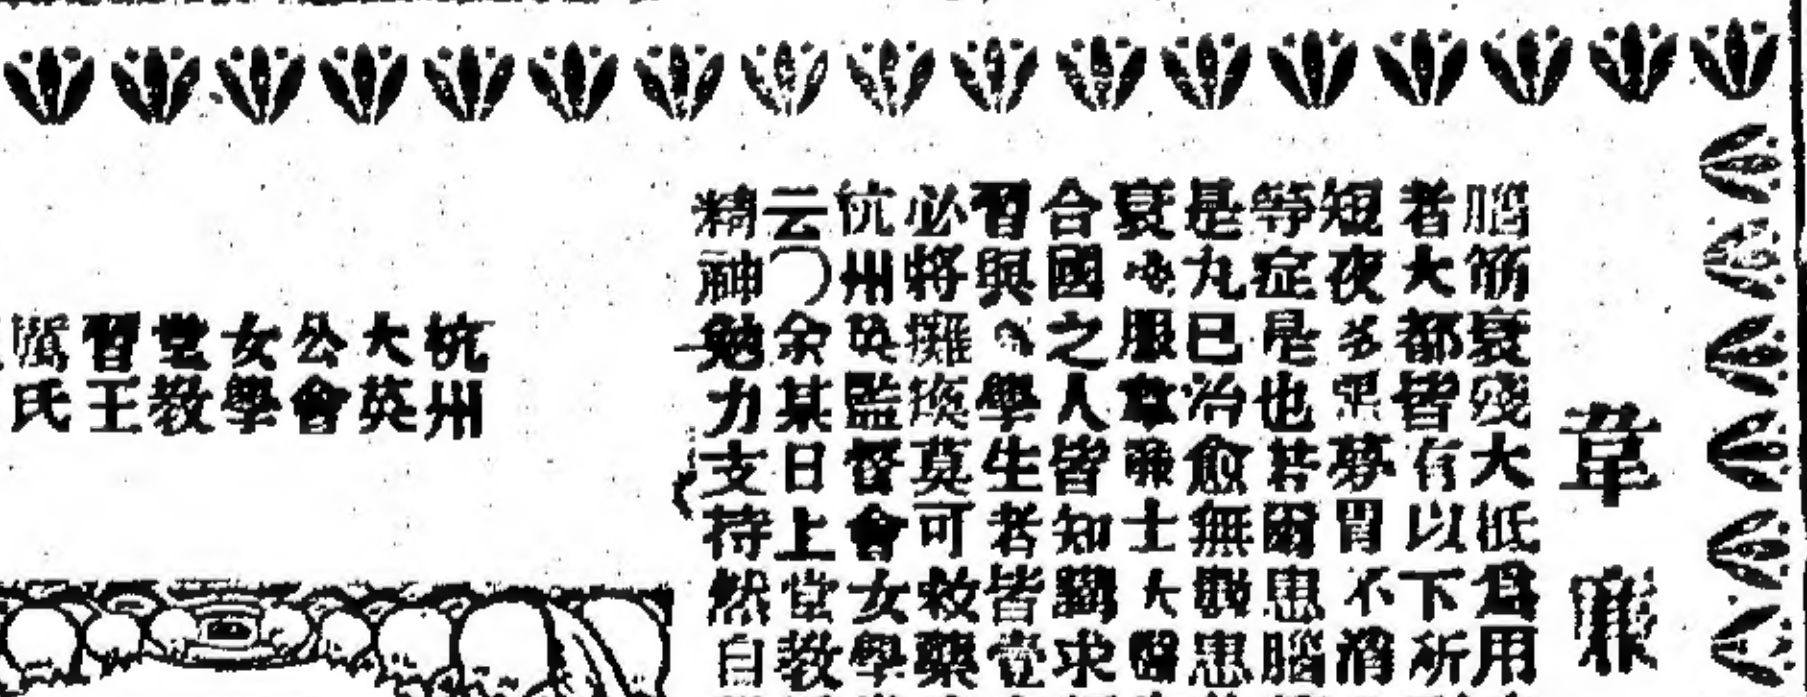 韋廉
腦筋衰殘大低爲用
者大都皆有以下所
短夜多惡夢胃不消
等症是也若爾患腦
是九已治愈無數患
衰 服韋廉士大醫
合國之人皆知獨求
習與 學生者皆壹
必將癱瘓莫可救藥
杭州英監督會女學
云余某日上堂教
精神勉力支持然自
杭州
大英
公會
女學
堂教
習王
氏